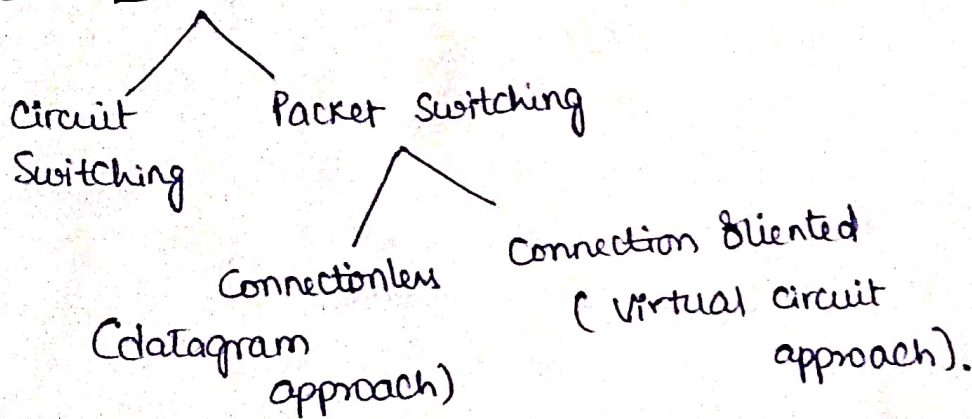 Circuit
Switching
Packet Switching
Connectionless
(datagram
approach)
Connection Oriented
(Virtual Circuit
approach).